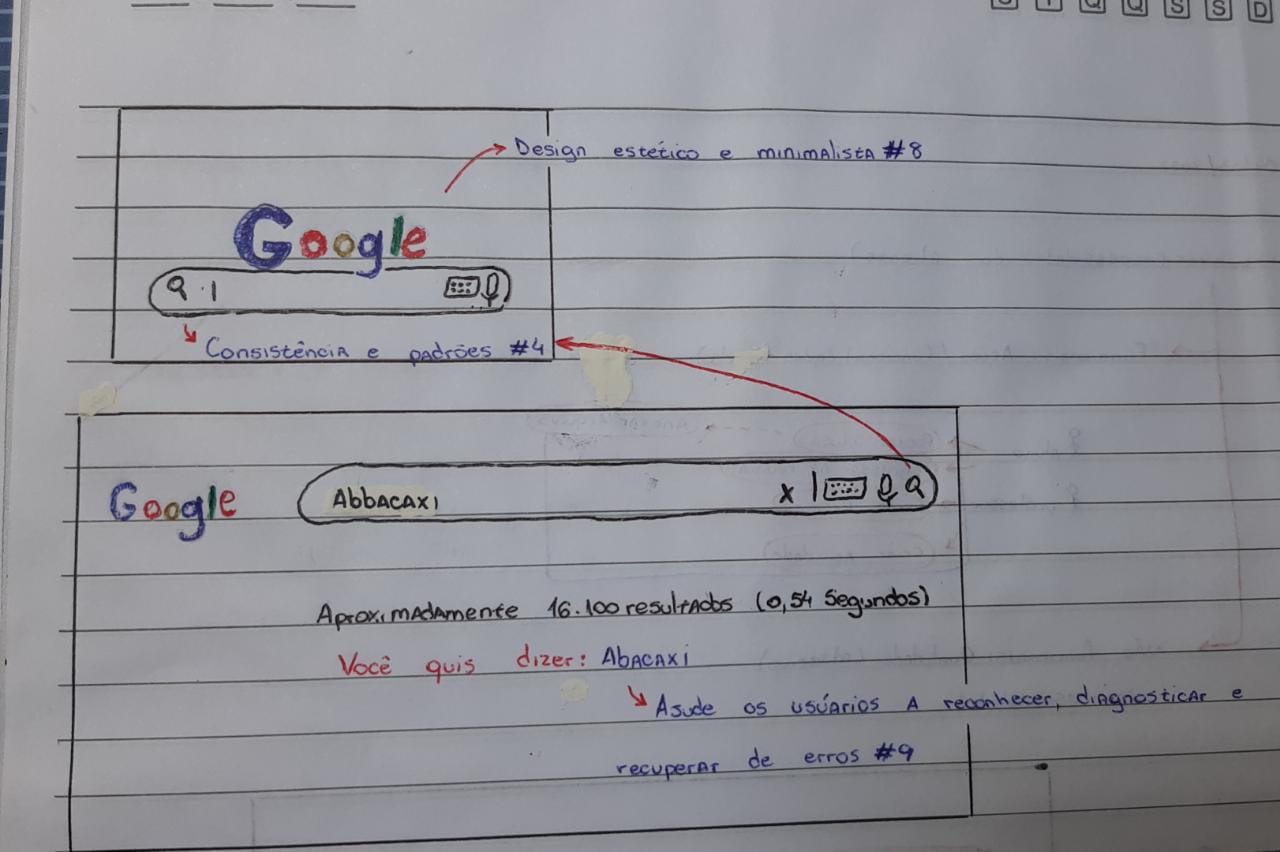 S T Q Q S S D
Design estético e minimalista #8
Google
Consistência e padrões #4
Google
Abbacaxi
x
Aproximadamente 16.100 resultados (0,54 segundos)
Você quis dizer: Abacaxi
Asude os usúarios a reconhecer, diagnosticar e
recuperar de erros #9